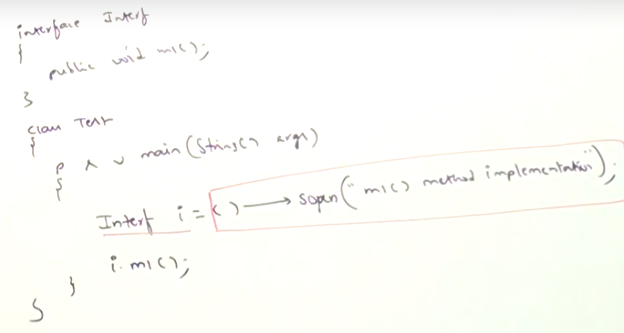 interface Interf
{
public void m1();
}
class Test
{
p s v main(String[] args)
{
Interf i = () → sopln("m1() method implementation");
i.m1();
}
}